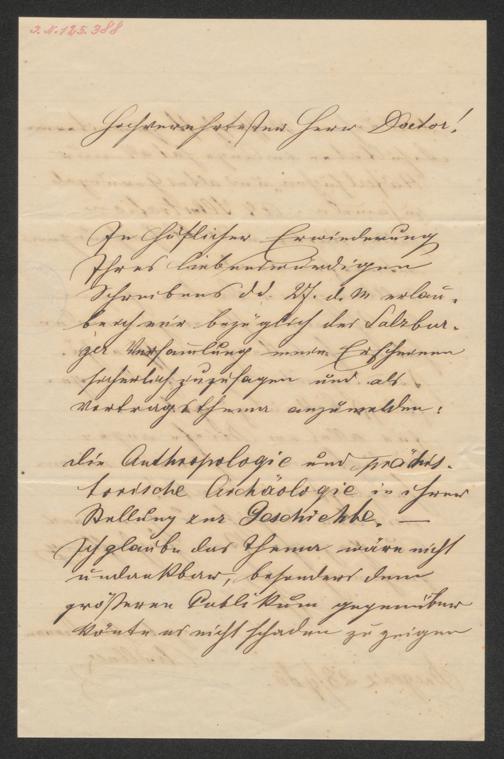 J.N.125.388
Hochverehrtester Herr Doctor!
In höflicher Erwiederung
Ihres liebenswürdigen
Schreibens dd. 27. d. M erlau-
be ich mir bezüglich der Salzbur-
ger Versammlung mein Erscheinen
sicherlich zuzusagen und als
Vortragsthema anzumelden:
Die Anthropologie und prähis-
torische Archäologie in ihrer
Stellung zur Geschichte. —
Ich glaube das Thema wäre nicht
undankbar, besonders dem
größeren Publikum gegenüber
könte es nicht schaden zu zeigen